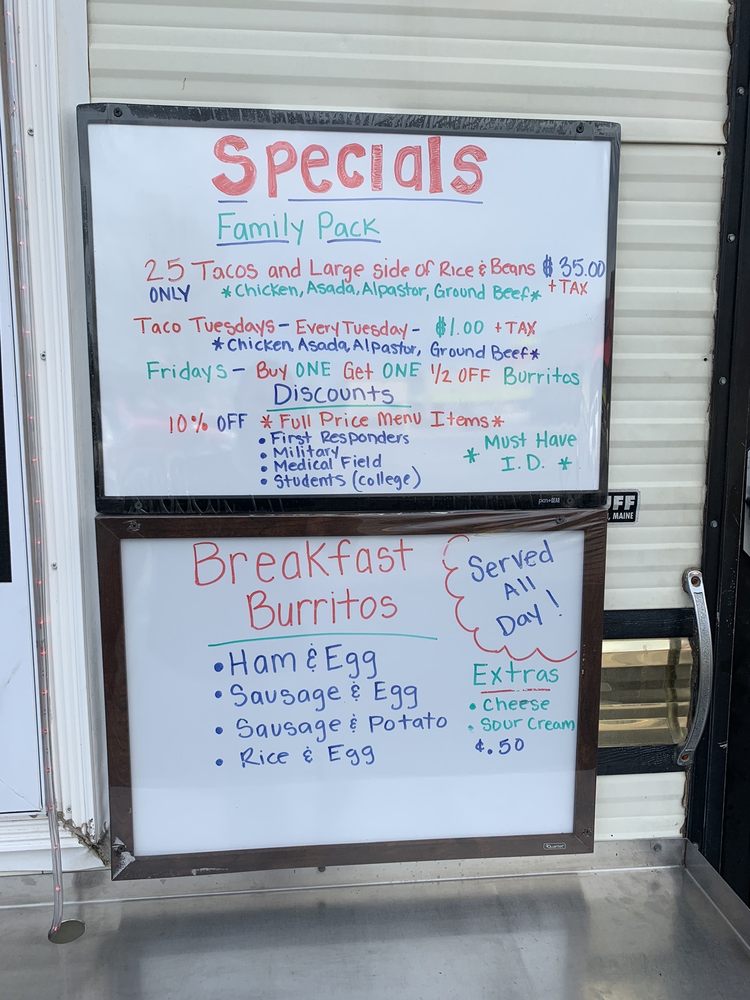 Specials
Family Pack
25 Tacos and Large side of Rice & Beans $35.00
ONLY *Chicken, Asada, Alpastor, Ground Beef* + TAX
Taco Tuesdays - Every Tuesday - $1.00 + TAX
*Chicken, Asada, Alpastor, Ground Beef*
Fridays - Buy ONE Get ONE 1/2 OFF Burritos
Discounts
10% OFF *Full Price Menu Items*
• First Responders
• Military
• Medical Field
• Students (college)
* Must Have
I.D. *
Breakfast
Burritos
Served
All
Day!
• Ham & Egg
• Sausage & Egg
• Sausage & Potato
• Rice & Egg
Extras
• Cheese
• Sour Cream
¢.50
Quartet
UFF
, MAINE